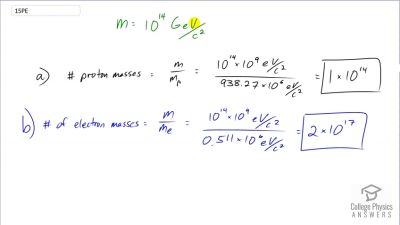 15PE
m = 10^14 GeV/c²
a) # proton masses = m/mₚ = 10^14 × 10^9 eV/c² / 938.27 × 10^6 eV/c² = 1 × 10^14
b) # of electron masses = m/mₑ = 10^14 × 10^9 eV/c² / 0.511 × 10^6 eV/c² = 2 × 10^17
College Physics
ANSWERS